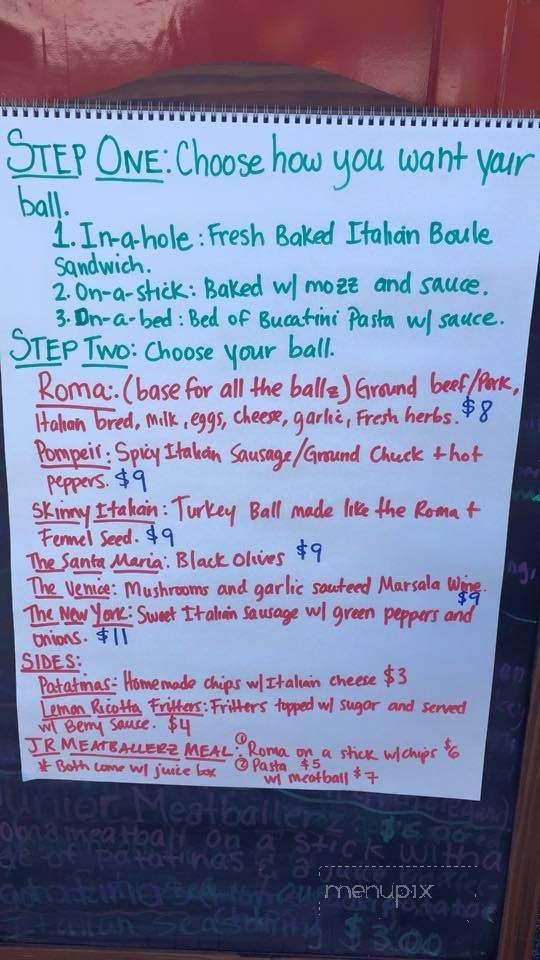 STEP ONE: Choose how you want your
ball.
1. In-a-hole: Fresh Baked Italian Boule
Sandwich.
2. On-a-stick: Baked w/ mozz and sauce.
3. On-a-bed: Bed of Bucatini Pasta w/ sauce.
STEP TWO: Choose your ball.
Roma: (base for all the ballz) Ground beef/Pork,
Italian bred, milk, eggs, cheese, garlic, Fresh herbs. $8
Pompeii: Spicy Italian Sausage/Ground Chuck + hot
peppers. $9
Skinny Italian: Turkey Ball made like the Roma +
Fennel Seed. $9
The Santa Maria: Black Olives $9
The Venice: Mushrooms and garlic sauteed Marsala Wine.
$9
The New York: Sweet Italian Sausage w/ green peppers and
onions. $11
SIDES:
Patatinas: Homemade chips w/ Italian cheese $3
Lemon Ricotta Fritters: Fritters topped w/ sugar and served
w/ Berry Sauce. $4
JR MEATBALLERZ MEAL: ① Roma on a stick w/chips $6
* Both come w/ juice box ② Pasta $5
w/ meatball $7
Junior Meatballerz: $6.00
meatball on a stick with a
of Patatinas &
menupix
Italian Seasoning $3.00